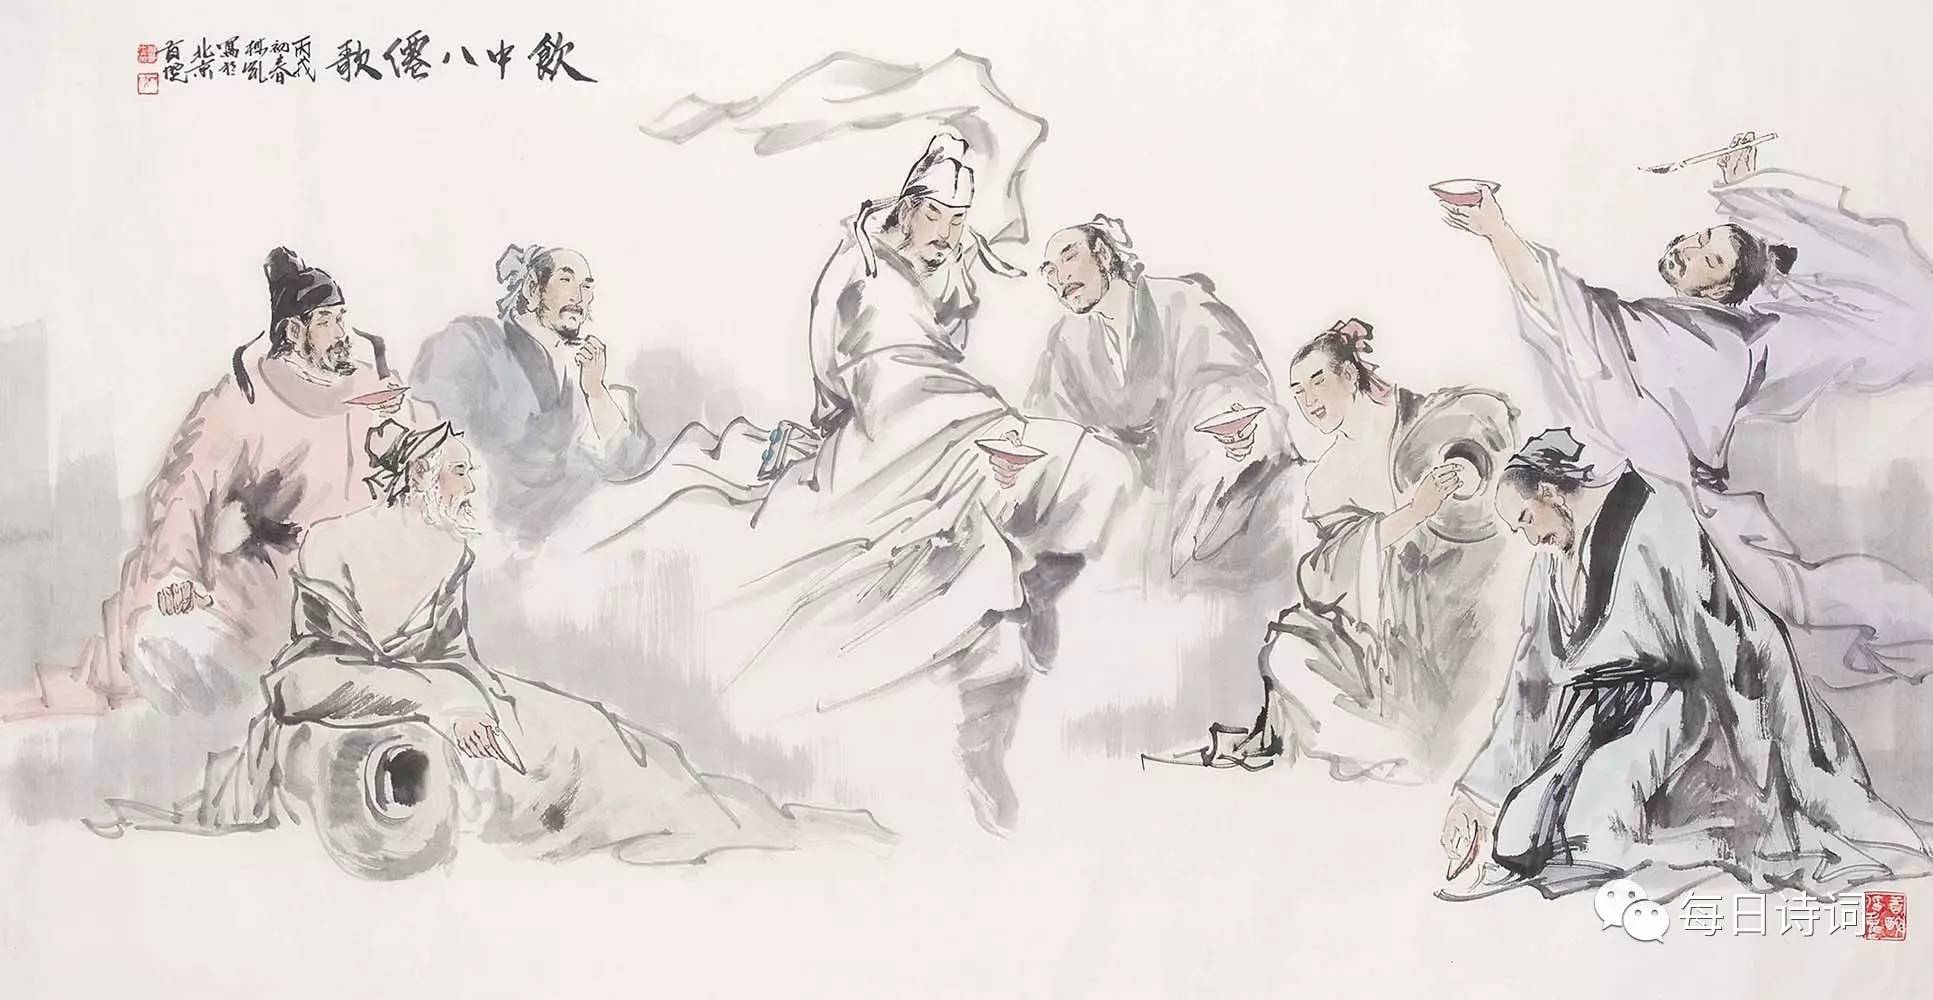 飲中八僊歌
丙戌
初春
寫於
北京
每日诗词